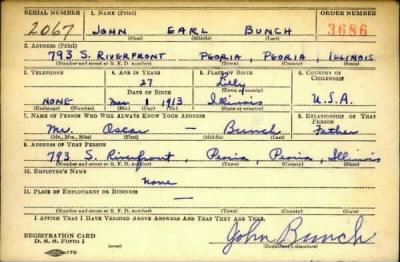 SERIAL NUMBER 1. NAME (Print) ORDER NUMBER
2067 JOHN EARL BUNCH 3686
(First) (Middle) (Last)
2. ADDRESS (Print)
793 S. RIVERFRONT PEORIA, PEORIA, ILLINOIS
(Number and street or R. F. D. number) (Town) (County) (State)
3. TELEPHONE 4. AGE IN YEARS 5. PLACE OF BIRTH 6. COUNTRY OF CITIZENSHIP
27 Lilly
DATE OF BIRTH (Town or county)
NONE 1 1913 Illinois U.S.A.
(Exchange) (Number) (Mo.) (Day) (Yr.) (State or country)
7. NAME OF PERSON WHO WILL ALWAYS KNOW YOUR ADDRESS 8. RELATIONSHIP OF THAT PERSON
Mr. Oscar — Bunch Father
(Mr., Mrs., Miss) (First) (Middle) (Last)
9. ADDRESS OF THAT PERSON
793 S. Riverfront, Peoria, Peoria, Illinois
(Number and street or R. F. D. number) (Town) (County) (State)
10. EMPLOYER'S NAME
none
11. PLACE OF EMPLOYMENT OR BUSINESS
—
(Number and street or R. F. D. number) (Town) (County) (State)
I AFFIRM THAT I HAVE VERIFIED ABOVE ANSWERS AND THAT THEY ARE TRUE.
REGISTRATION CARD
D. S. S. Form 1 John Bunch
(Registrant's signature)